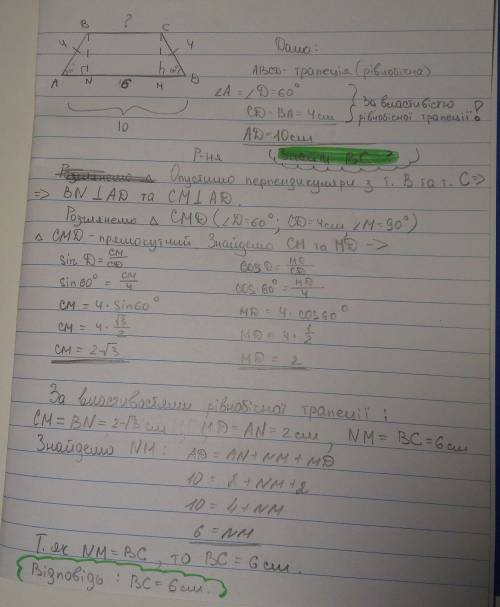 ?
B C
4 4
60° 60°
A N 6 M D
10
Дано:
ABCD - трапеція (рівнобічна)
∠A = ∠D = 60°
CD = BA = 4 см
За властивістю рівнобічної трапеції!
AD = 10 см
Знайти BC - ?
Р-ня
Опустимо перпендикуляри з т. B та т. C =>
=> BN ⊥ AD та CM ⊥ AD.
Розглянемо △ CMD (∠D = 60°; CD = 4 см ∠M = 90°)
△ CMD - прямокутний Знайдемо CM та MD ->
sin D = CM/CD cos D = MD/CD
sin 60° = CM/4 cos 60° = MD/4
CM = 4 · sin 60° MD = 4 · cos 60°
CM = 4 · √3/2 MD = 4 · 1/2
CM = 2√3 MD = 2
За властивостями рівнобічної трапеції:
CM = BN = 2√3 см, MD = AN = 2 см, NM = BC = 6 см
Знайдемо NM: AD = AN + NM + MD
10 = 2 + NM + 2
10 = 4 + NM
6 = NM
Т. як NM = BC, то BC = 6 см.
Відповідь: BC = 6 см.